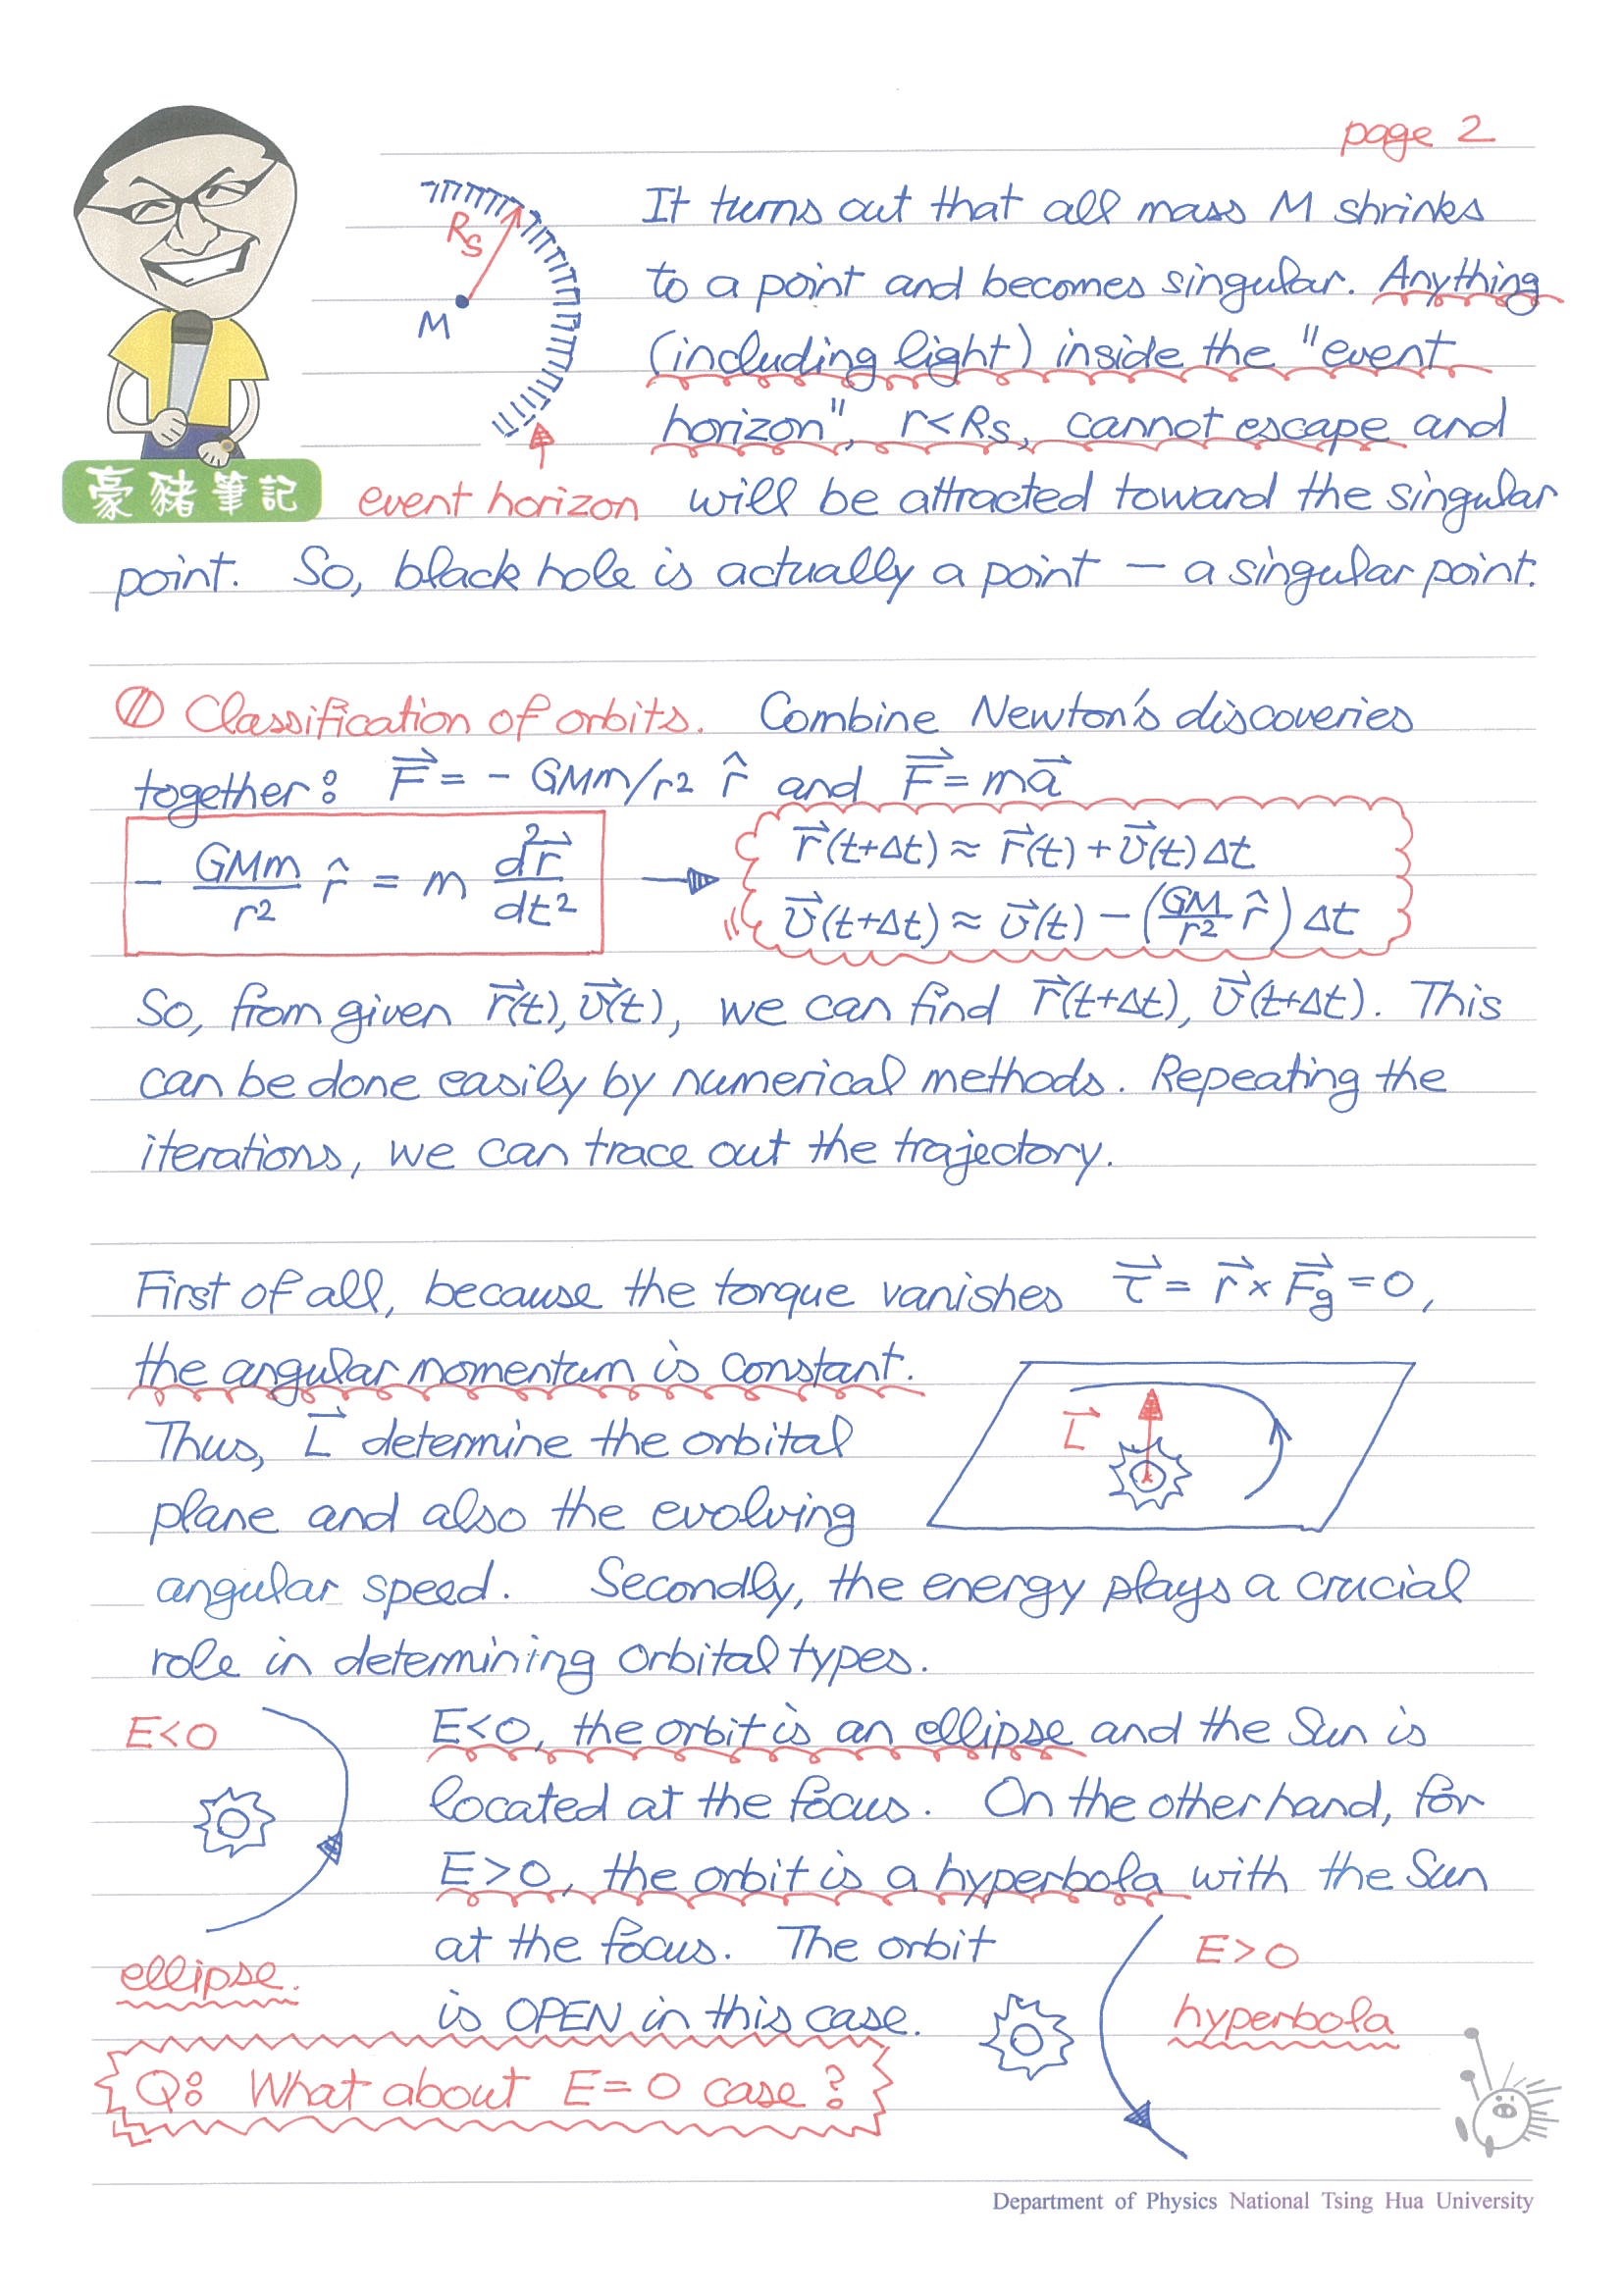 page 2
It turns out that all mass M shrinks
to a point and becomes singular. Anything
(including light) inside the "event
horizon", r<Rs, cannot escape and
Rs
M
豪豬筆記
event horizon will be attracted toward the singular
point. So, black hole is actually a point — a singular point.
① Classification of orbits. Combine Newton's discoveries
together: F⃗ = - GMm/r2 r̂ and F⃗ = ma⃗
- GMm/r² r̂ = m d²r⃗/dt² → r⃗(t+Δt) ≈ r⃗(t) + v⃗(t)Δt
v⃗(t+Δt) ≈ v⃗(t) - (GM/r² r̂)Δt
So, from given r⃗(t), v⃗(t), we can find r⃗(t+Δt), v⃗(t+Δt). This
can be done easily by numerical methods. Repeating the
iterations, we can trace out the trajectory.
First of all, because the torque vanishes τ⃗ = r⃗ × F⃗g = 0,
the angular momentum is constant.
Thus, L⃗ determine the orbital
L⃗
plane and also the evolving
angular speed. Secondly, the energy plays a crucial
role in determining orbital types.
E<0
E<0, the orbit is an ellipse and the Sun is
located at the focus. On the other hand, for
E>0, the orbit is a hyperbola with the Sun
at the focus. The orbit
is OPEN in this case.
ellipse.
E>0
hyperbola
Q: What about E=0 case?
Department of Physics National Tsing Hua University